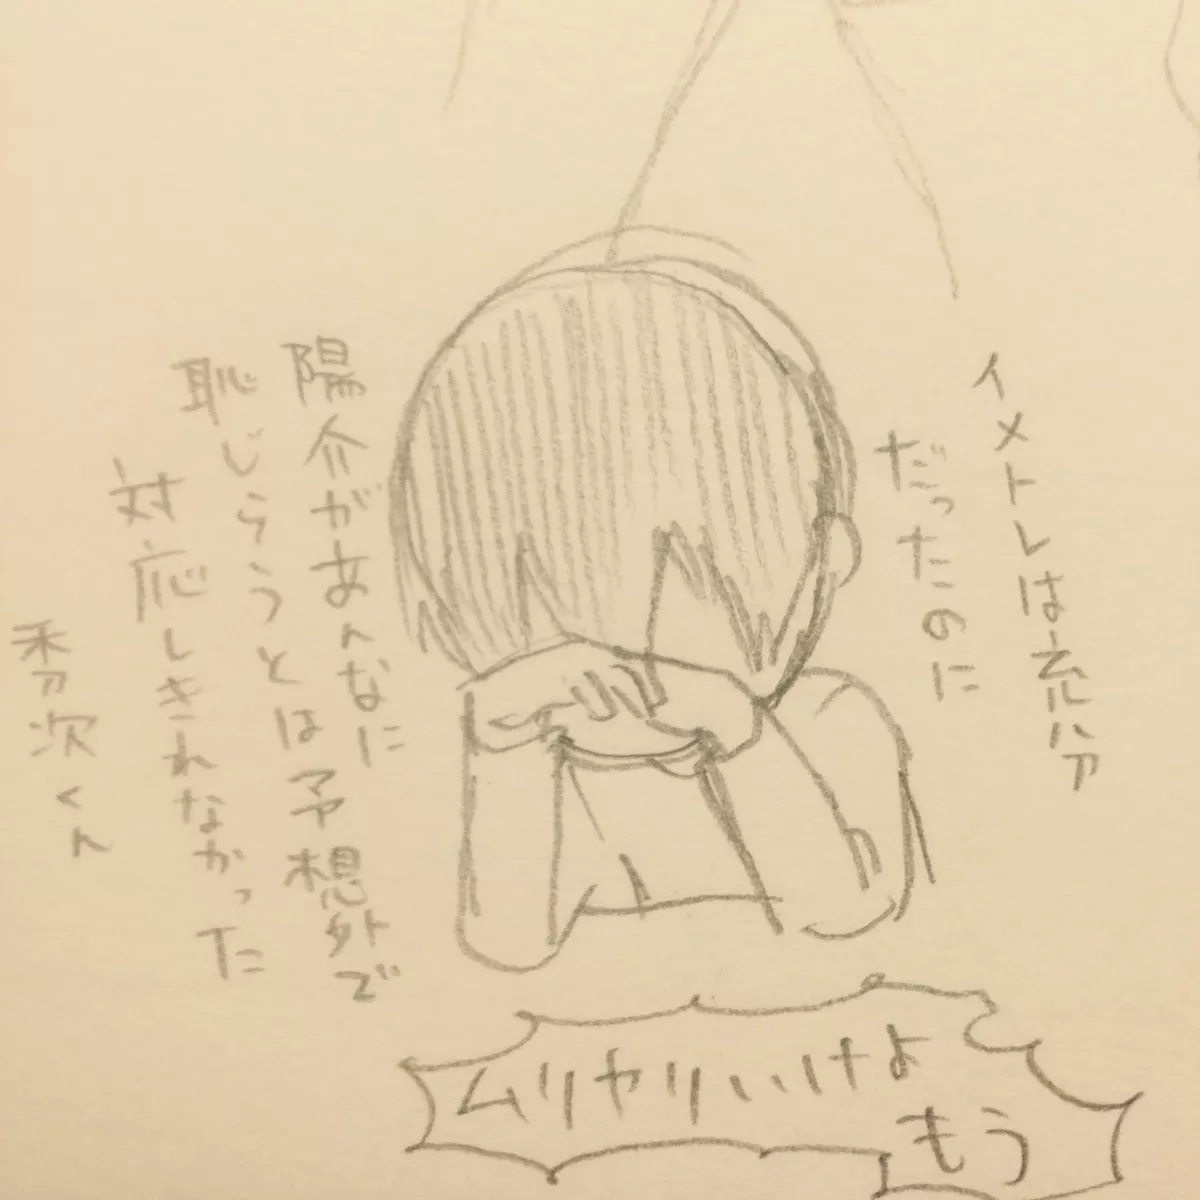 イメトレは充分
だったのに
陽介があんなに
恥じらうとは予想外で
対応しきれなかった
秀次くん
ムリヤリいけよ
もう